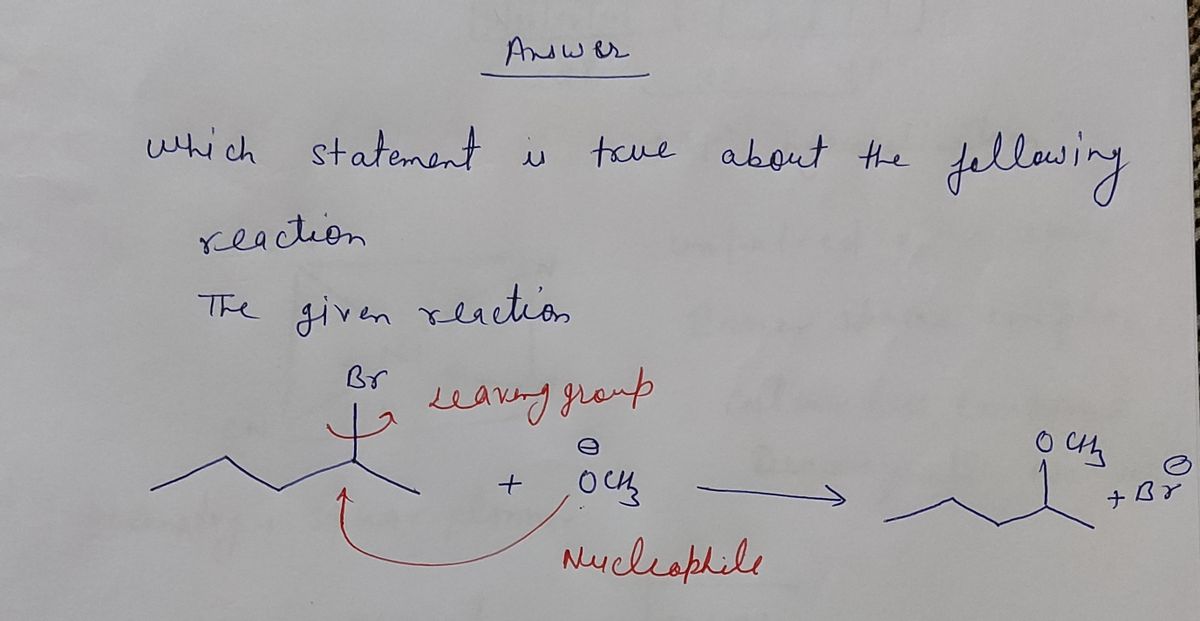 Answer
which statement is true about the following
reaction
The given reaction
Br
Leaving group
+ ⊖OCH3 → OCH3 + Br⊖
Nucleophile